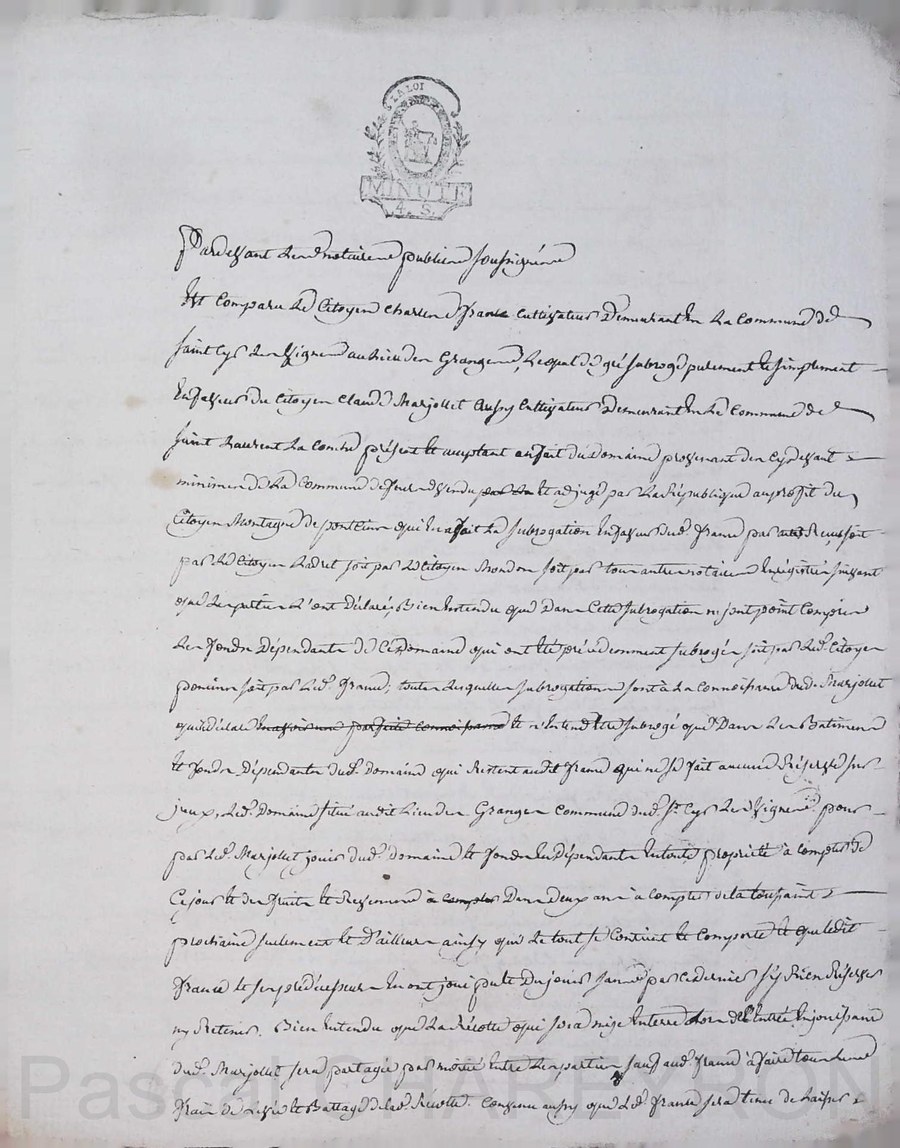 LA LOI
MINUTE
4. S.
Pardevant les notaires publics soussignés
Est comparu le Citoyen Charles france Cultivateur Demeurant en la Commune de
saint Cyr les Vignes au lieu des Granges, Lequel de gré subroge purement et simplement
en faveur du Citoyen Claude Marjollet aussy Cultivateur Demeurant en la Commune de
saint Laurent la Conche présent et acceptant au fait du Domaine provenant des Cydevant
minimes de la Commune de feurs vendu et adjugé par la République au profit du
Citoyen Montagne de poncins qui en a fait la subrogation en faveur dud. france par actes Reçus soit
par le Citoyen Ladret soit par le Citoyen Mondon soit par tout autre notaire Enregistré suivant
que les parties l'ont Déclaré, Bien entendu que Dans Cette subrogation ne sont point Compris
les fonds Dépendants de Ce Domaine qui ont été précédemment subrogés soit par led. Citoyen
soit par led. france; toutes lesquelles subrogations sont à la Connoissance dud. Marjollet
qui déclare en avoir une parfaite connoissance et n'entend être subrogé que Dans les Batiments
et fonds Dépendants dud. domaine qui Restent audit france qui ne se fait aucune Réserve sur
iceux, led. Domaine situé audit lieu des Granges Commune dud. St. Cyr les Vignes. pour
par led. Marjollet jouir dud. domaine et fonds en Dépendants en toute propriété à compter de
Ce jour et des fruits et Revenus à compter Dans deux ans à compter de la toussaint
prochaine seulement et D'ailleurs ainsy que le tout se Contient et Comporte et que ledit
france et ses prédécesseurs en ont joui pu et Du jouir sans par ce dernier s'y Rien Réserver
ny Retenir. Bien entendu que la Récolte qui sera mise en terre lors de l'entrée en jouissance
dud. Marjollet sera partagée par moitié entre les parties sauf aud. france à faire tous les
frais de Levée et Battage de lad. Récolte. Convenu aussy que led. france sera tenu de laisser
Pascal CHARPYRON